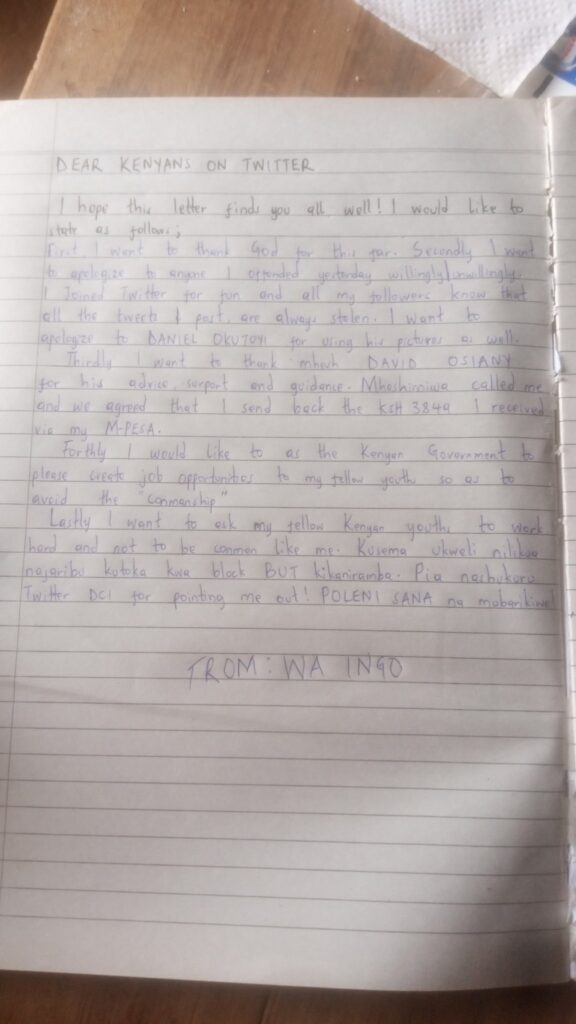 DEAR KENYANS ON TWITTER
I hope this letter finds you all well! I would like to
state as follows;
First, I want to thank God for this far. Secondly I want
to apologize to anyone I offended yesterday willingly/unwillingly.
I Joined Twitter for fun and all my followers know that
all the tweets & post, are always stolen. I want to
apologize to DANIEL OKUTOYI for using his pictures as well.
Thirdly I want to thank mhesh DAVID OSIANY
for his advice, surport and guidance. Mheshimiwa called me
and we agreed that I send back the KSH 3849 I received
via my M-PESA.
Forthly I would like to as the Kenyan Government to
please create job opportunities to my fellow youth so as to
avoid the "conmanship"
Lastly I want to ask my fellow Kenyan youths to work
hard and not to be conmen like me. Kusema ukweli nilikua
najaribu kutoka kwa block BUT kikaniramba. Pia nashukuru
Twitter DCI for pointing me out! POLENI SANA na mabarikiwe
FROM: WA INGO